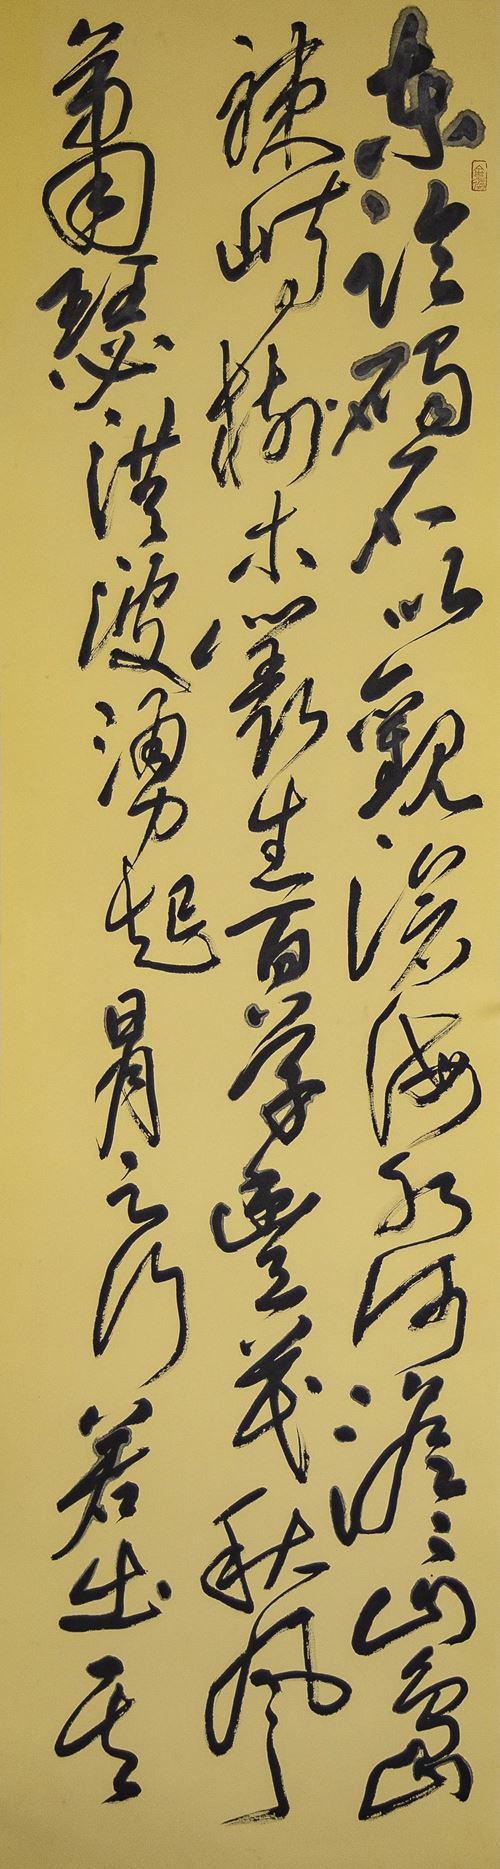 東臨碣石以觀滄海水何澹々山島
竦峙樹木叢生百草豐茂秋風
蕭瑟洪波湧起日月之行若出其